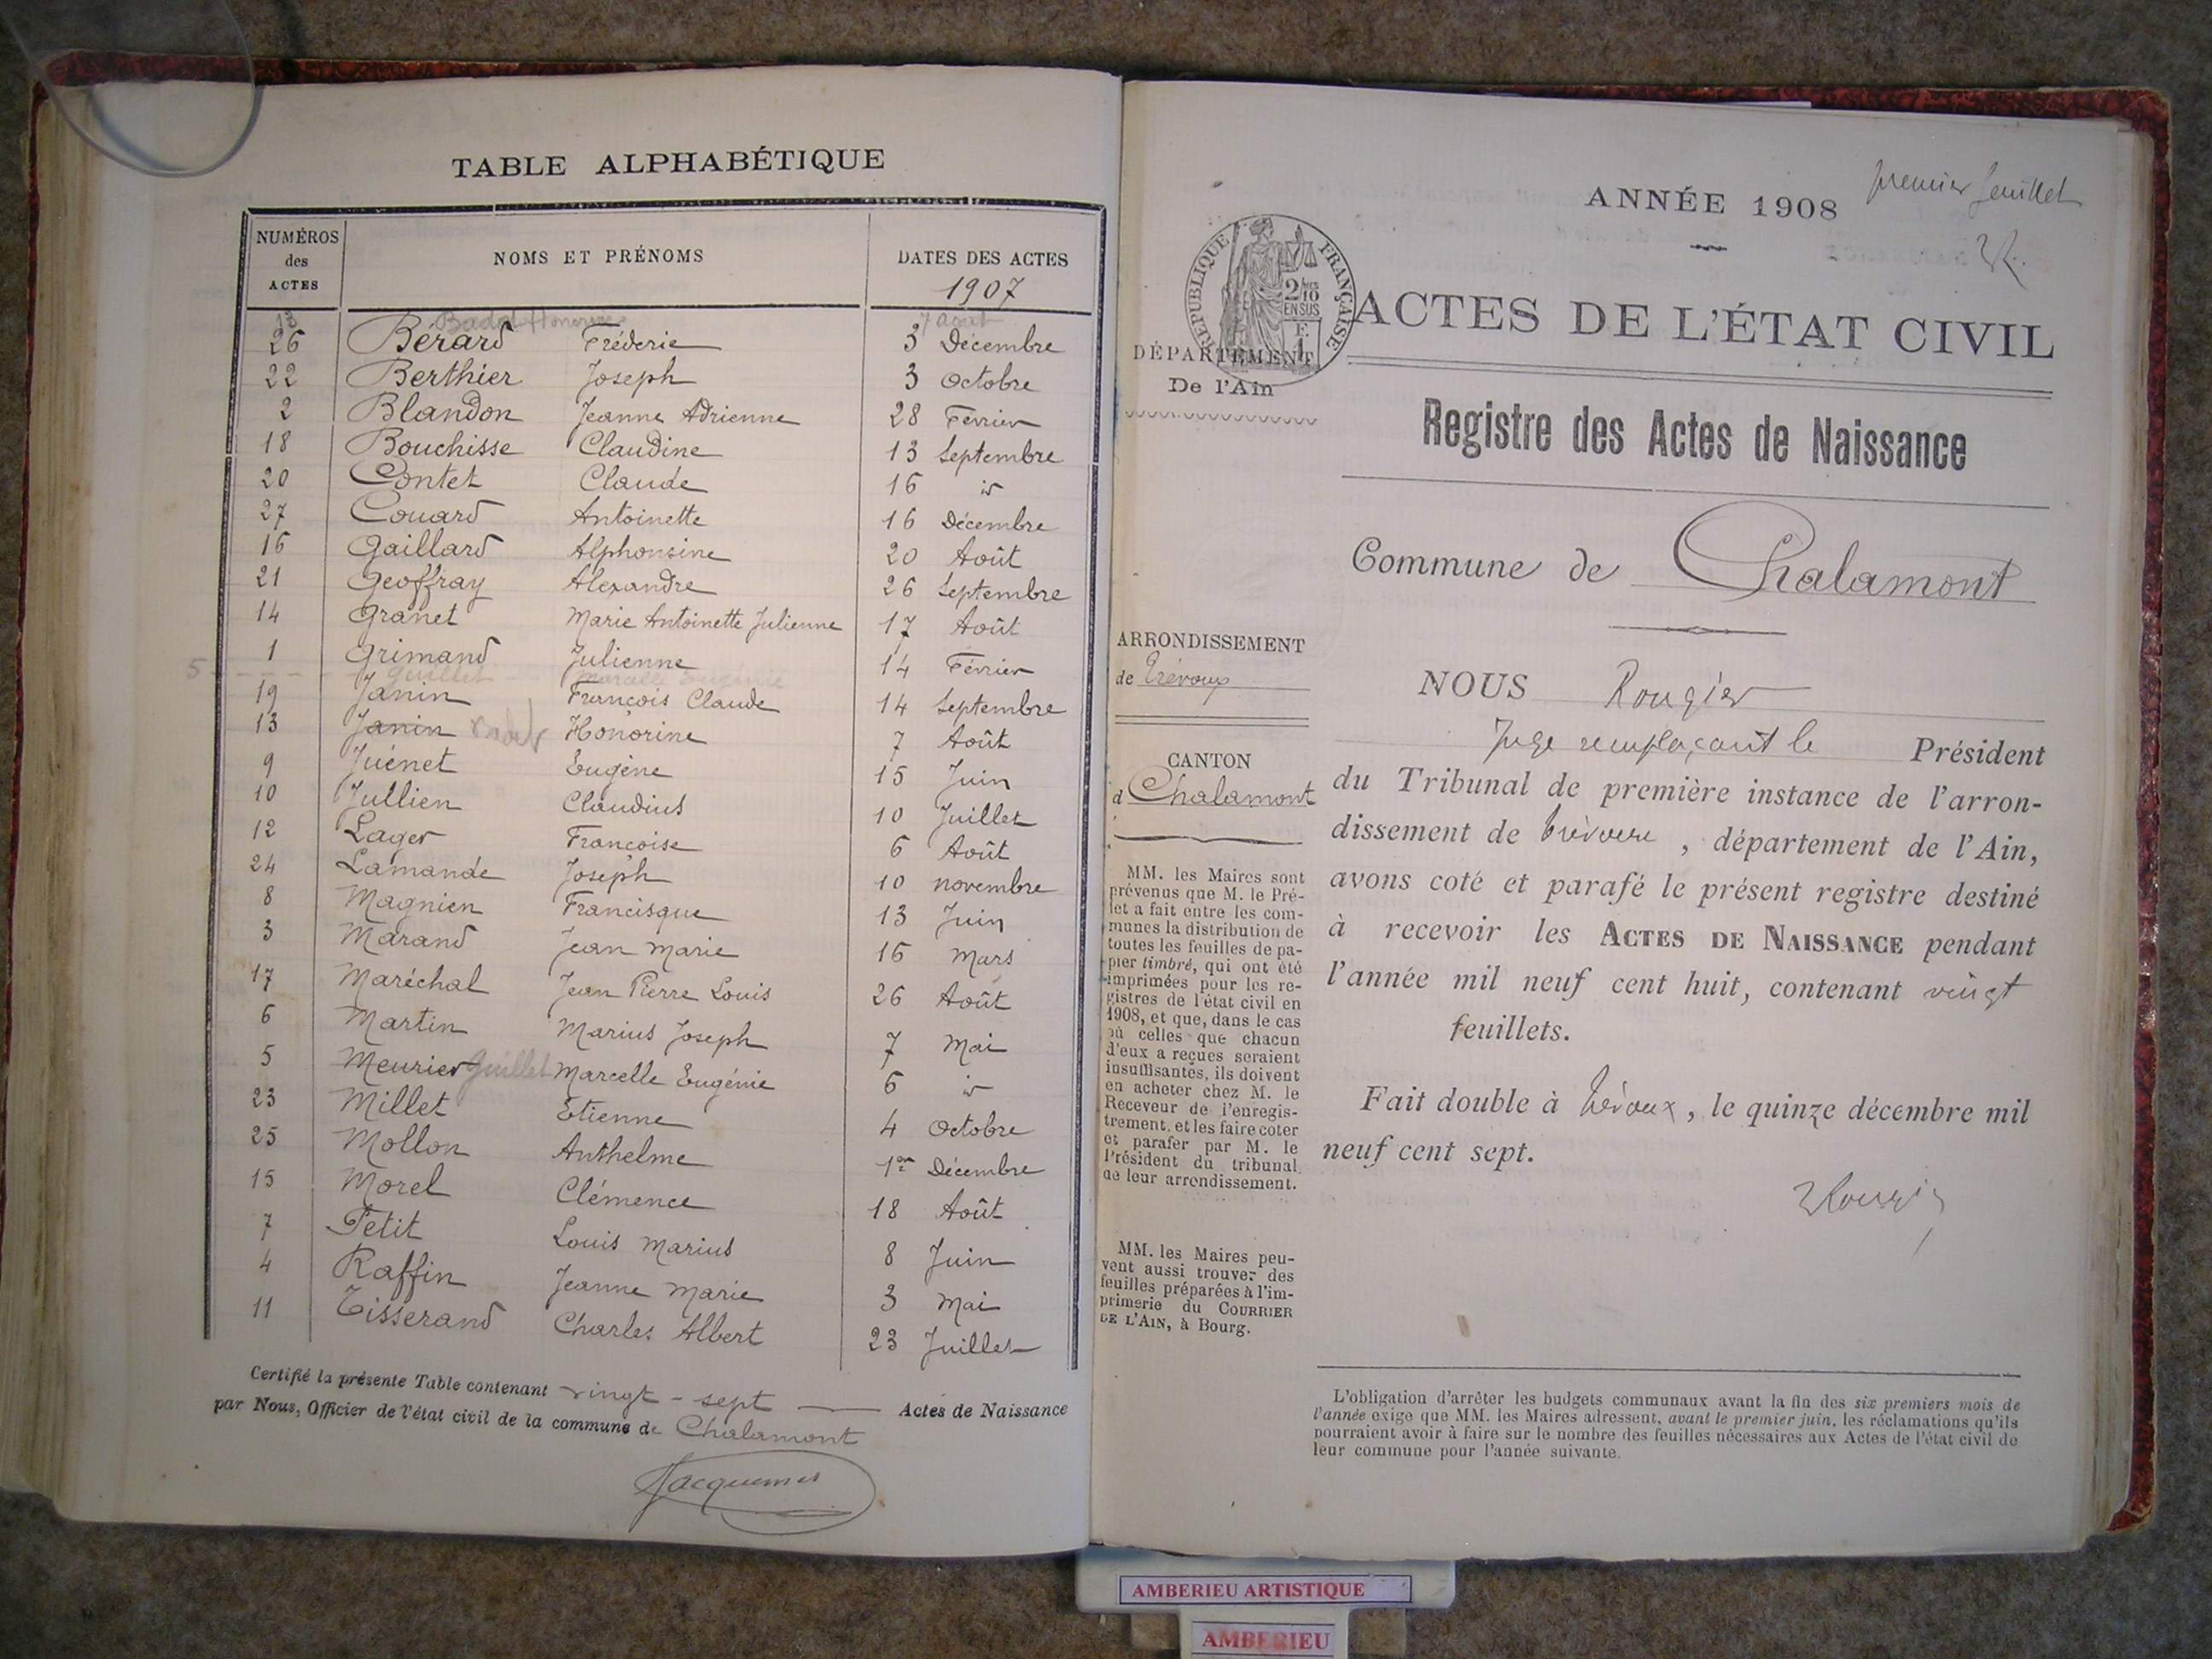 TABLE ALPHABÉTIQUE
NUMÉROS des ACTES
NOMS ET PRÉNOMS
DATES DES ACTES
1907
13 Badol Honorine 7 août
26 Bérard Fréderic 3 Décembre
22 Berthier Joseph 3 Octobre
2 Blandon Jeanne Adrienne 28 Février
18 Bouchisse Claudine 13 Septembre
20 Contet Claude 16 id
27 Couard Antoinette 16 Décembre
16 Gaillard Alphonsine 20 Août
21 Geoffray Alexandre 26 Septembre
14 Granet Marie Antoinette Julienne 17 Août
1 Grimand Julienne 14 Février
5 Guillet Marcelle Eugénie
19 Janin François Claude 14 Septembre
13 Janin Honorine 7 Août
9 Juénet Eugène 15 Juin
10 Jullien Claudius 10 Juillet
12 Lager Francoise 6 Août
24 Lamande Joseph 10 novembre
8 Magnien Francisque 13 Juin
3 Marand Jean Marie 16 Mars
17 Maréchal Jean Pierre Louis 26 Août
6 Martin Marius Joseph 7 Mai
5 Meurier Guillet Marcelle Eugénie 6 id
23 Millet Etienne 4 Octobre
25 Mollon Anthelme 1er Décembre
15 Morel Clémence 18 Août
7 Petit Louis Marius 8 Juin
4 Raffin Jeanne Marie 3 Mai
11 Tisserand Charles Albert 23 Juillet
Certifié la présente Table contenant vingt-sept Actes de Naissance
par Nous, Officier de l'état civil de la commune de Chalamont
Jacquemet
premier feuillet
ANNÉE 1908
RÉPUBLIQUE FRANÇAISE
2/10 EN SUS
ACTES DE L'ÉTAT CIVIL
DÉPARTEMENT
De l'Ain
Registre des Actes de Naissance
Commune de Chalamont
ARRONDISSEMENT
de Trévoux
CANTON
d Chalamont
MM. les Maires sont
prévenus que M. le Pré-
fet a fait entre les com-
munes la distribution de
toutes les feuilles de pa-
pier timbré, qui ont été
imprimées pour les re-
gistres de l'état civil en
1908, et que, dans le cas
où celles que chacun
d'eux a reçues seraient
insuffisantes, ils doivent
en acheter chez M. le
Receveur de l'enregis-
trement, et les faire coter
et parafer par M. le
Président du tribunal
de leur arrondissement.
MM. les Maires peu-
vent aussi trouver des
feuilles préparées à l'im-
primerie du COURRIER
DE L'AIN, à Bourg.
NOUS Rougier
Juge remplaçant le Président
du Tribunal de première instance de l'arron-
dissement de Trévoux, département de l'Ain,
avons coté et parafé le présent registre destiné
à recevoir les ACTES DE NAISSANCE pendant
l'année mil neuf cent huit, contenant vingt
feuillets.
Fait double à Trévoux, le quinze décembre mil
neuf cent sept.
Rougier
L'obligation d'arrêter les budgets communaux avant la fin des six premiers mois de
l'année exige que MM. les Maires adressent, avant le premier juin, les réclamations qu'ils
pourraient avoir à faire sur le nombre des feuilles nécessaires aux Actes de l'état civil de
leur commune pour l'année suivante.
AMBERIEU ARTISTIQUE
AMBERIEU